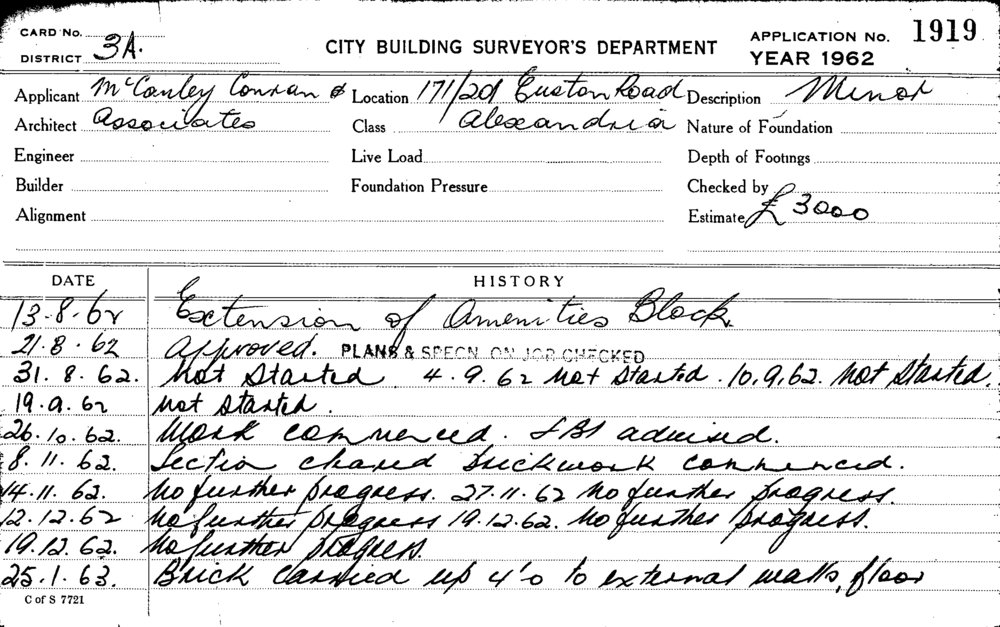 CARD No.
DISTRICT 3A.
CITY BUILDING SURVEYOR'S DEPARTMENT
APPLICATION No. 1919
YEAR 1962
Applicant McCauley Conran & Location 171/201 Euston Road Description Minor
Architect Associates Class Alexandria Nature of Foundation
Engineer Live Load Depth of Footings
Builder Foundation Pressure Checked by
Alignment Estimate £3000
DATE HISTORY
13.8.62 Extension of Amenities Block.
21.8.62 Approved. PLANS & SPECN ON JOB CHECKED
31.8.62. Not Started. 4.9.62 Not Started. 10.9.62. Not Started.
19.9.62 Not Started.
26.10.62. Work commenced. advised.
8.11.62. Section brickwork commenced.
14.11.62. No further progress. 27.11.62 No further progress.
12.12.62 No further progress 19.12.62. No further progress.
19.12.62. No further progress.
25.1.63. Brick carried up 4'0 to external walls, floor
C of S 7721